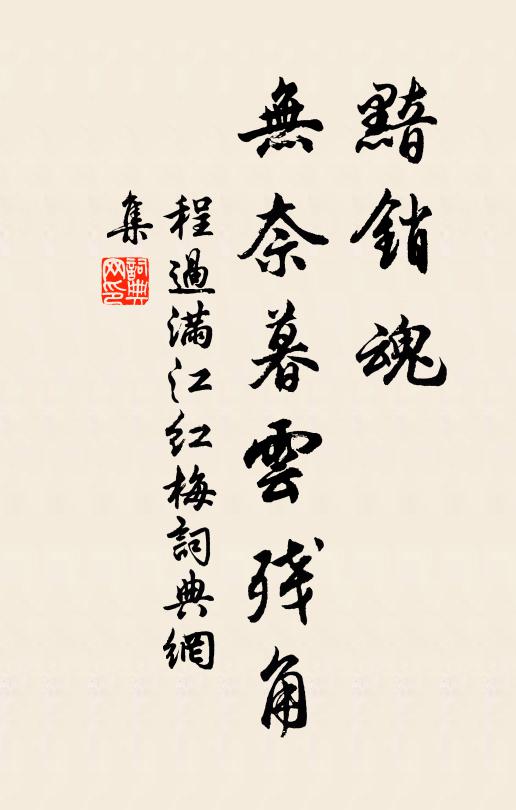 黯銷魂
無奈暮雲残角
程過滿江紅梅詞典網
集
詞典
网印